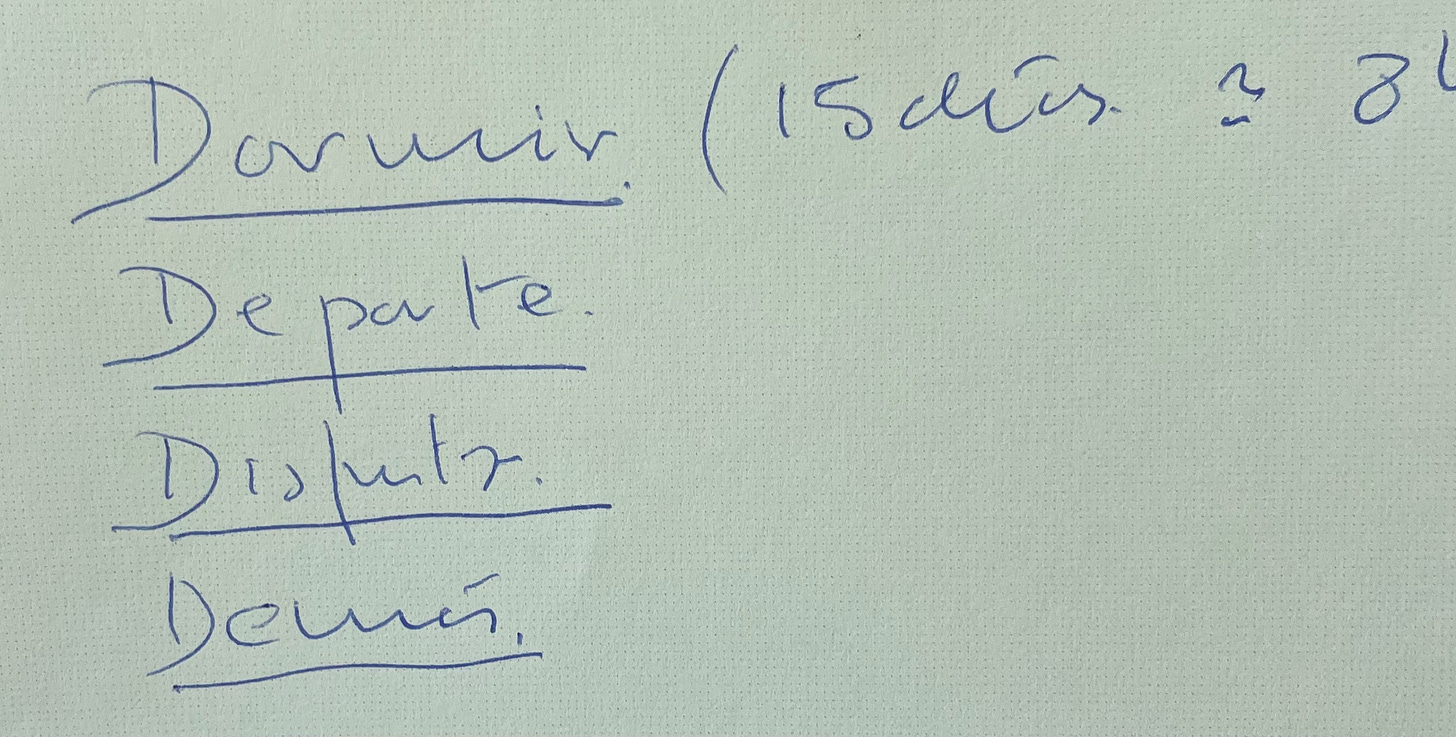 Dormir. (15 días ≈ 8h
Deporte.
Disfrutar.
Demás.